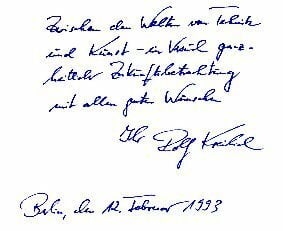 Zwischen den Welten von Technik
und Kunst – in
Zukunftsbetrachtung
mit allen guten Wünschen
Ihr Rolf
Berlin, den 12. Februar 1993